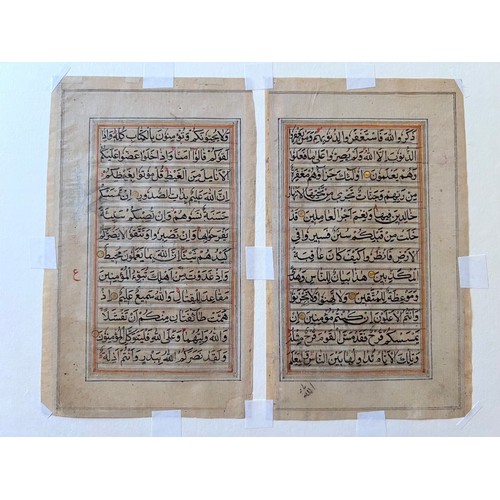 ذكروا الله فاستغفروا لذنوبهم ومن يغفر
الذنوب الا الله ولم يصروا على ما فعلوا
وهم يعلمون اولئك جزاؤهم مغفرة
من ربهم وجنات تجري من تحتها الانهار
خالدين فيها ونعم اجر العاملين قد
خلت من قبلكم سنن فسيروا في
الارض فانظروا كيف كان عاقبة
المكذبين هذا بيان للناس وهدى
وموعظة للمتقين ولا تهنوا ولا تحزنوا
وانتم الاعلون ان كنتم مؤمنين ان
يمسسكم قرح فقد مس القوم قرح مثله
وتلك الايام نداولها بين الناس وليعلم
ولا يحبونكم وتؤمنون بالكتاب كله واذا
لقوكم قالوا آمنا واذا خلوا عضوا عليكم
الانامل من الغيظ قل موتوا بغيظكم
ان الله عليم بذات الصدور ان تمسسكم
حسنة تسؤهم وان تصبكم سيئة
يفرحوا بها وان تصبروا وتتقوا لا يضركم
كيدهم شيئا ان الله بما يعملون محيط
واذ غدوت من اهلك تبوئ المؤمنين
مقاعد للقتال والله سميع عليم اذ
همت طائفتان منكم ان تفشلا
والله وليهما وعلى الله فليتوكل المؤمنون
ولقد نصركم الله ببدر وانتم اذلة
ع